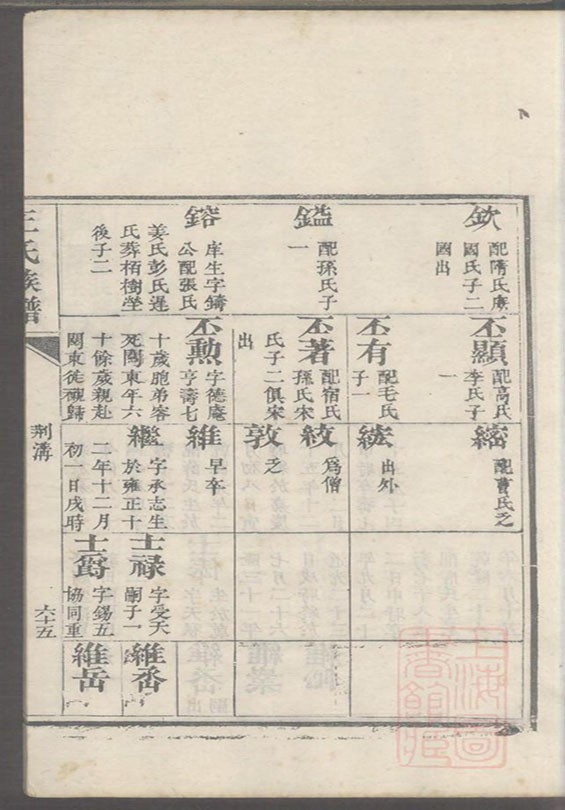 欽 配隋氏庶
國氏子二
國出
鎰 配孫氏子
一
鎔 庠生字鑄
公配張氏
姜氏彭氏遲
氏葬栢樹塋
後子二
丕顯 配高氏
李氏子
一
丕有 配毛氏
子一
丕著 配宿氏
孫氏宋
氏子二俱宋
出
丕勲 字德庵
亨壽七
十歲胞弟容
死関東年六
十餘歲親赴
関東徒櫬歸
配曹氏乏
出外
為僧
敦 乏
維 早卒
繼 字承志生
於雍正十
二年十二月
初一日戌時
士祿 字受天
嗣子一
士爵 字錫五
協同重
維岙
維岳
王氏族譜
荆溝
六十五
上海圖書館藏